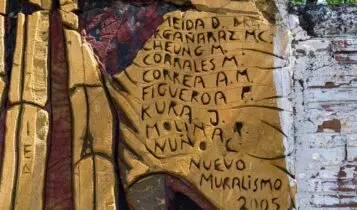 MEIDA D.
ARGAÑARAZ MC
CHEUNG M.
CORRALES M.
CORREA A.M.
FIGUEROA F.
KURA J.
MOLINA R.
NUÑO C.
NUEVO
MURALISMO
2005